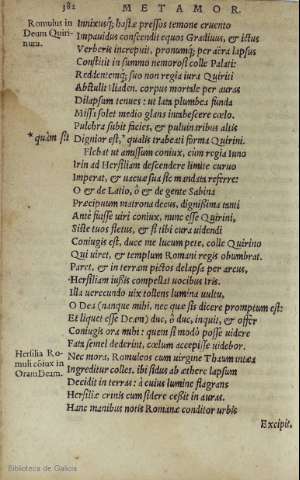 382 METAMOR.
Romulus in
Deum Quiri-
num.
Innixusq; hastæ pressos temone cruento
Impauidus conscendit equos Gradiuus, & ictus
Verberis increpuit, pronumq; per aëra lapsus
Constitit in summo nemorosi colle Palati:
Reddentemq; suo non regia iura Quiriti
Abstulit Iliaden. corpus mortale per auras
Dilapsum tenues: ut lata plumbea funda
Missa solet medio glans intabescere cœlo.
Pulchra subit facies, & puluinaribus altis
*quàm sit
Dignior est, *qualis trabeati forma Quirini.
Flebat ut amissum coniux, cùm regia Iuno
Irin ad Hersiliam descendere limite curuo
Imperat, & uacuæ sua sic mandata referre:
O & de Latio, ô & de gente Sabina
Præcipuum matrona decus, dignissima tanti
Antè fuisse uiri coniux, nunc esse Quirini,
Siste tuos fletus, & si tibi cura uidendi
Coniugis est, duce me lucum pete, colle Quirino
Qui uiret, & templum Romani regis obumbrat.
Paret, & in terram pictos delapsa per arcus,
Hersiliam iussis compellat uocibus Iris.
Illa uerecundo uix tollens lumina uultu,
O Dea (nanque mihi, nec quæ sis dicere promptum est:
Et liquet esse Deam) duc, ô duc, inquit, & offer
Coniugis ora mihi: quem si modò posse uidere
Fata semel dederint, cœlum accepisse uidebor.
Hersilia Ro-
muli cōiux in
Oram Deam.
Nec mora, Romuleos cum uirgine Thaumantæa
Ingreditur colles. ibi sidus ab æthere lapsum
Decidit in terras: à cuius lumine flagrans
Hersiliæ crinis cum sidere cessit in auras.
Hanc manibus notis Romanæ conditor urbis
Excipit.
Biblioteca de Galicia